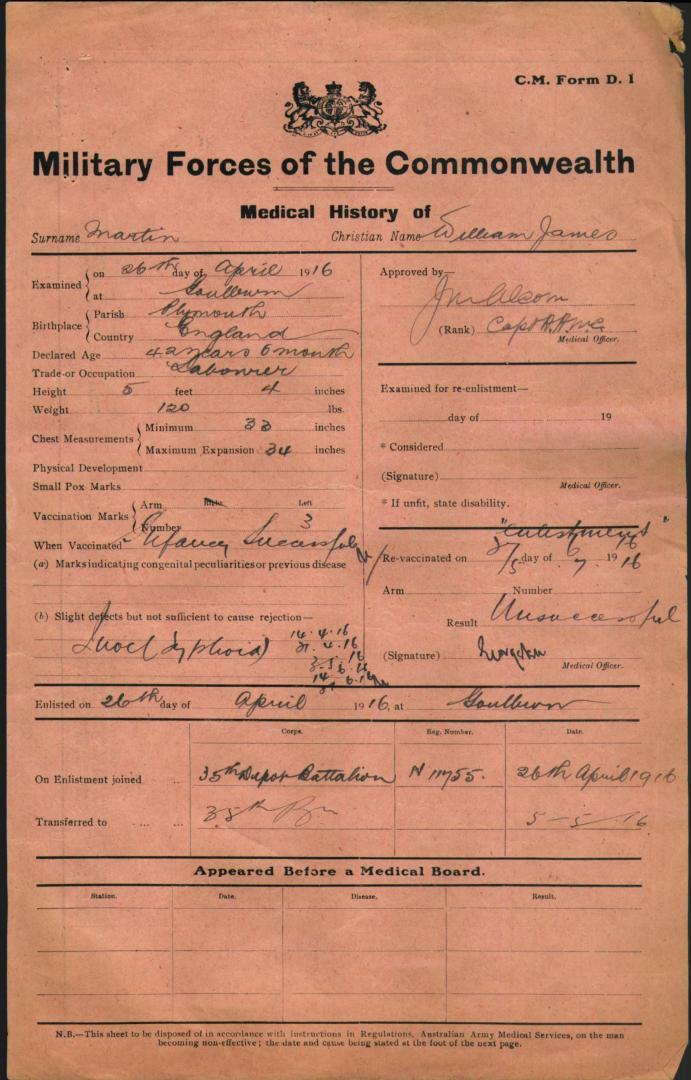 C.M. Form D. 1
Military Forces of the Commonwealth
Medical History of
Surname Martin Christian Name William James
Examined on 26th day of April 1916
at Goulburn
Birthplace Parish Plymouth
Country England
Declared Age 42 years 6 month
Trade or Occupation Labourer
Height 5 feet 4 inches
Weight 120 lbs.
Chest Measurements Minimum 33 inches
Maximum Expansion 34 inches
Physical Development
Small Pox Marks
Vaccination Marks Arm Right Left
Number 3
When Vaccinated Infancy Sucessful
(a) Marks indicating congenital peculiarities or previous disease
(b) Slight defects but not sufficient to cause rejection—
Inoc (Typhoid) 14.4.16
Approved by—
(Rank) Capt
Medical Officer.
Examined for re-enlistment—
day of 19
* Considered
(Signature)
Medical Officer.
* If unfit, state disability.
Re-vaccinated on day of 1916
Arm Number
Result Unsuccessful
(Signature)
Medical Officer.
Enlisted on 26th day of April 1916, at Goulburn
Corps. Reg. Number. Date.
On Enlistment joined 35th Depot Battalion N 11755. 26th April 1916
Transferred to 5-5-16
Appeared Before a Medical Board.
Station. Date. Disease. Result.
N.B.—This sheet to be disposed of in accordance with instructions in Regulations, Australian Army Medical Services, on the man
becoming non-effective; the date and cause being stated at the foot of the next page.